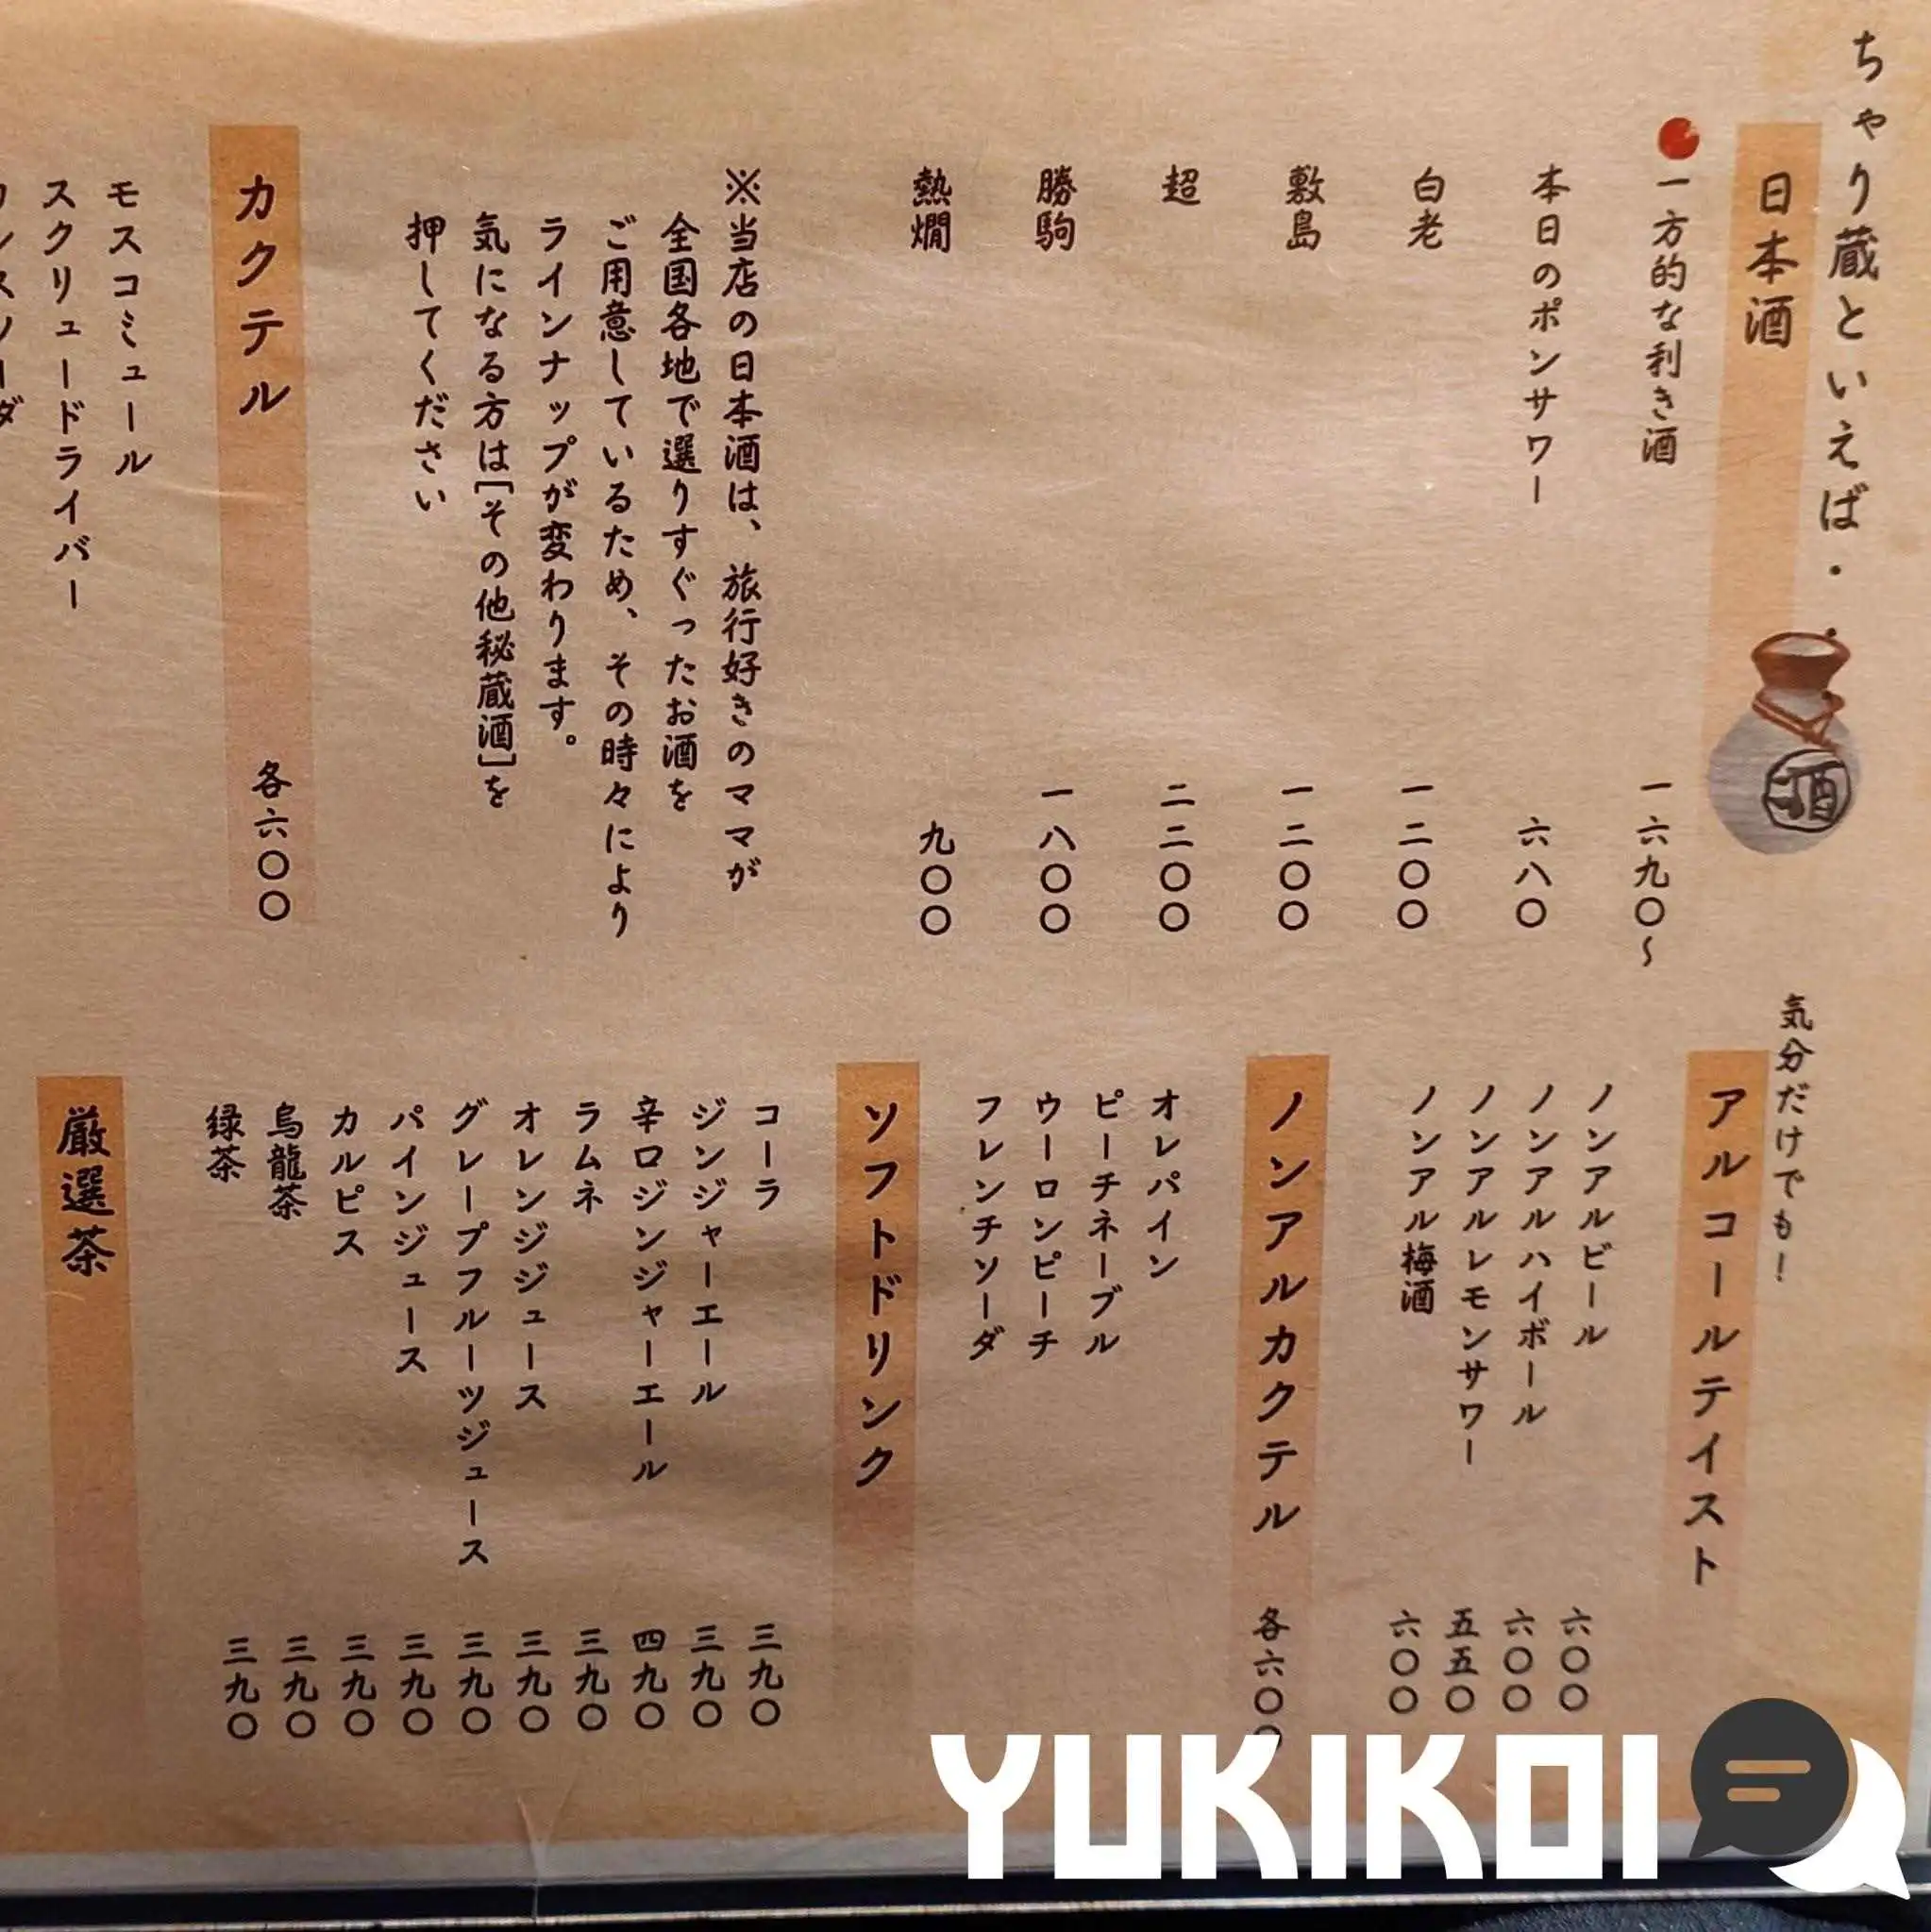 ちゃり蔵といえば・・
日本酒
一方的な利き酒 一六九〇〜
本日のポンサワー 六八〇
白老 一二〇〇
敷島 一二〇〇
超 二二〇〇
勝駒 一八〇〇
熱燗 九〇〇
※当店の日本酒は、旅行好きのママが
全国各地で選りすぐったお酒を
ご用意しているため、その時々により
ラインナップが変わります。
気になる方は[その他秘蔵酒]を
押してください
カクテル 各六〇〇
モスコミュール
スクリュードライバー
酒
気分だけでも！
アルコールテイスト
ノンアルビール 六〇〇
ノンアルハイボール 六〇〇
ノンアルレモンサワー 五五〇
ノンアル梅酒 六〇〇
ノンアルカクテル 各六〇〇
オレパイン
ピーチネーブル
ウーロンピーチ
フレンチソーダ
ソフトドリンク
コーラ 三九〇
ジンジャーエール 三九〇
辛口ジンジャーエール 四九〇
ラムネ 三九〇
オレンジジュース 三九〇
グレープフルーツジュース 三九〇
パインジュース 三九〇
カルピス 三九〇
烏龍茶 三九〇
緑茶 三九〇
厳選茶
YUKIKOI